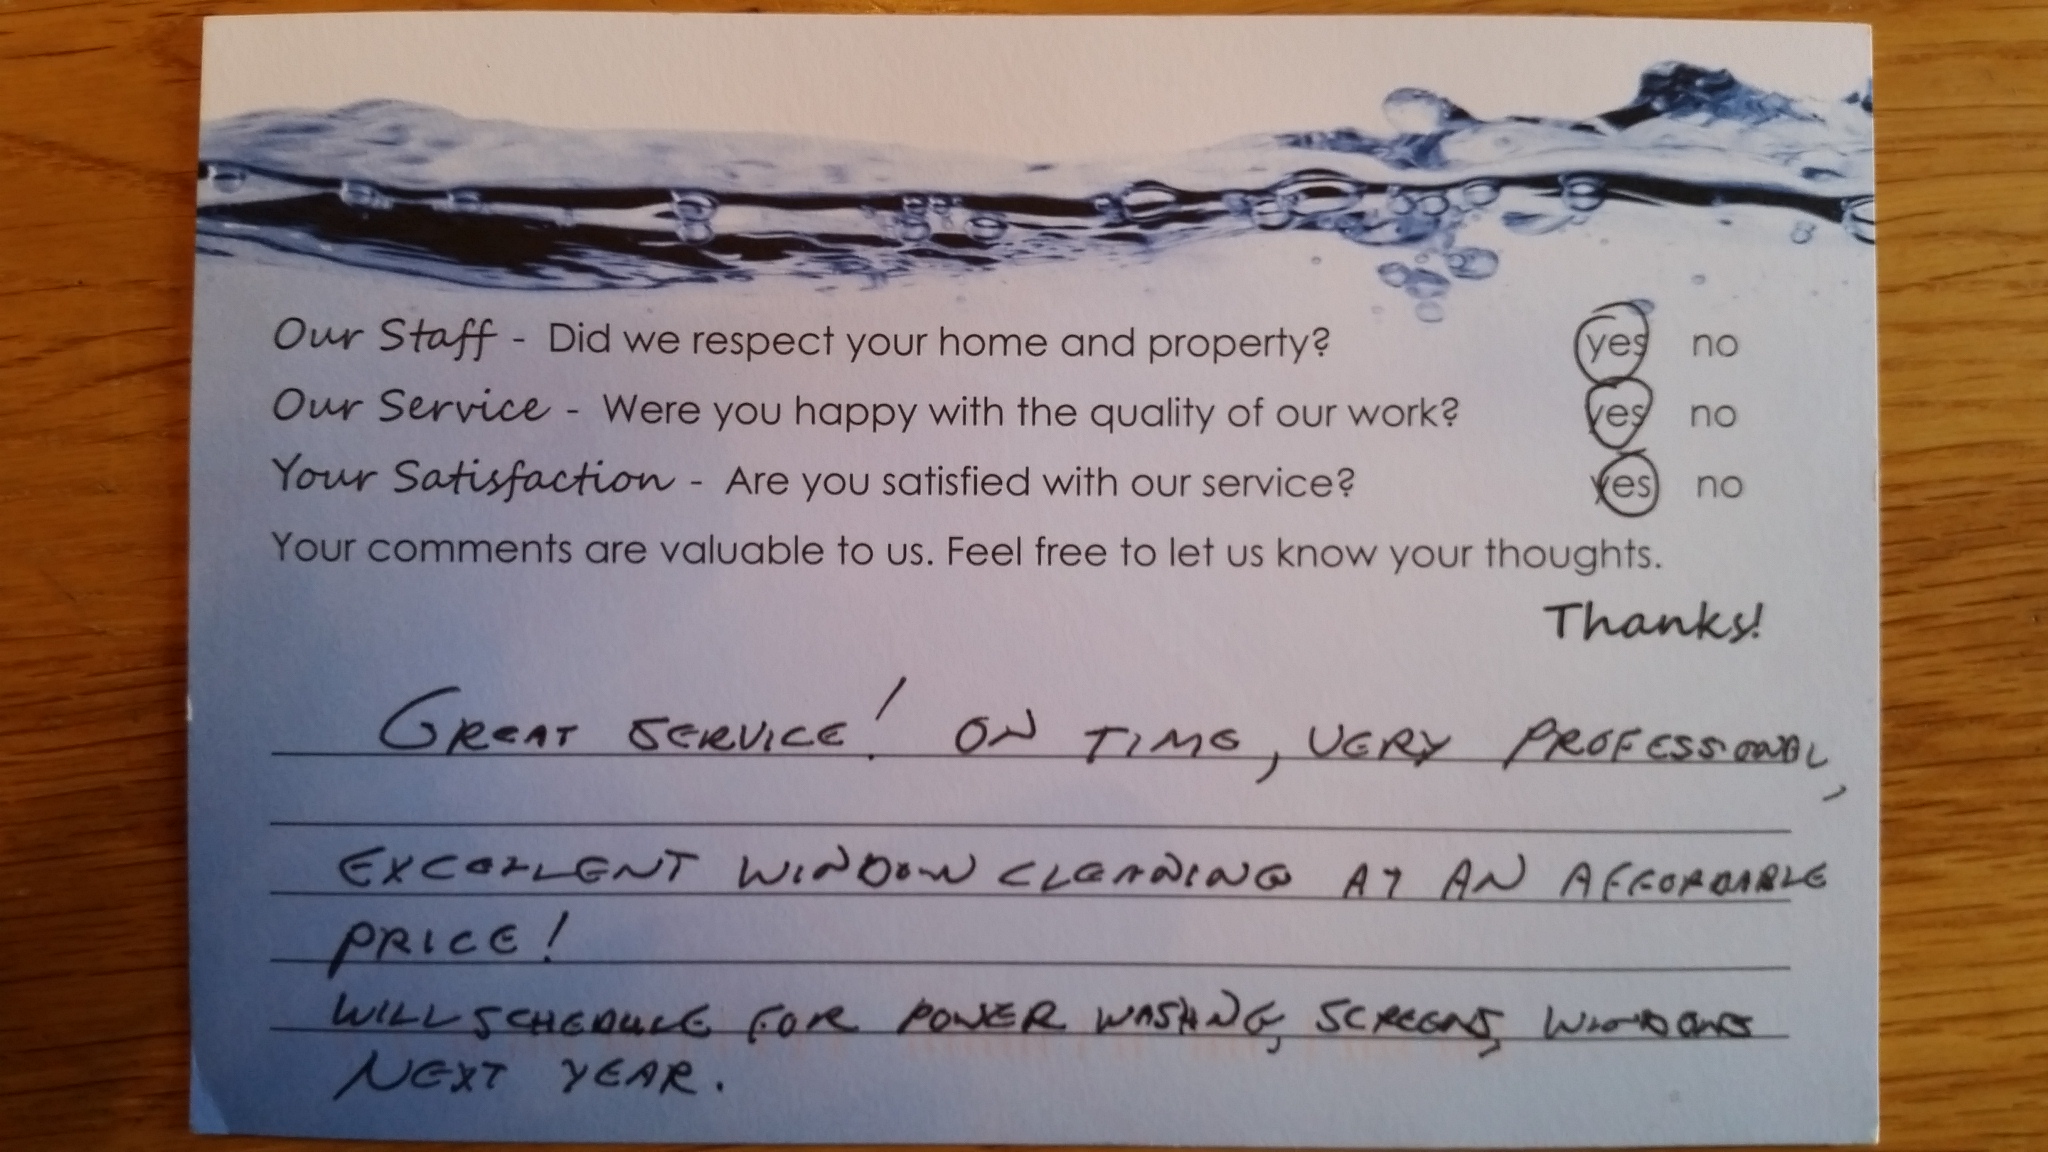 Our Staff - Did we respect your home and property? yes no
Our Service - Were you happy with the quality of our work? yes no
Your Satisfaction - Are you satisfied with our service? yes no
Your comments are valuable to us. Feel free to let us know your thoughts.
Thanks!
GREAT SERVICE! ON TIME, VERY PROFESSIONAL,
EXCELLENT WINDOW CLEANING AT AN AFFORDABLE
PRICE!
WILL SCHEDULE FOR POWER WASHING, SCREENS, WINDOWS
NEXT YEAR.